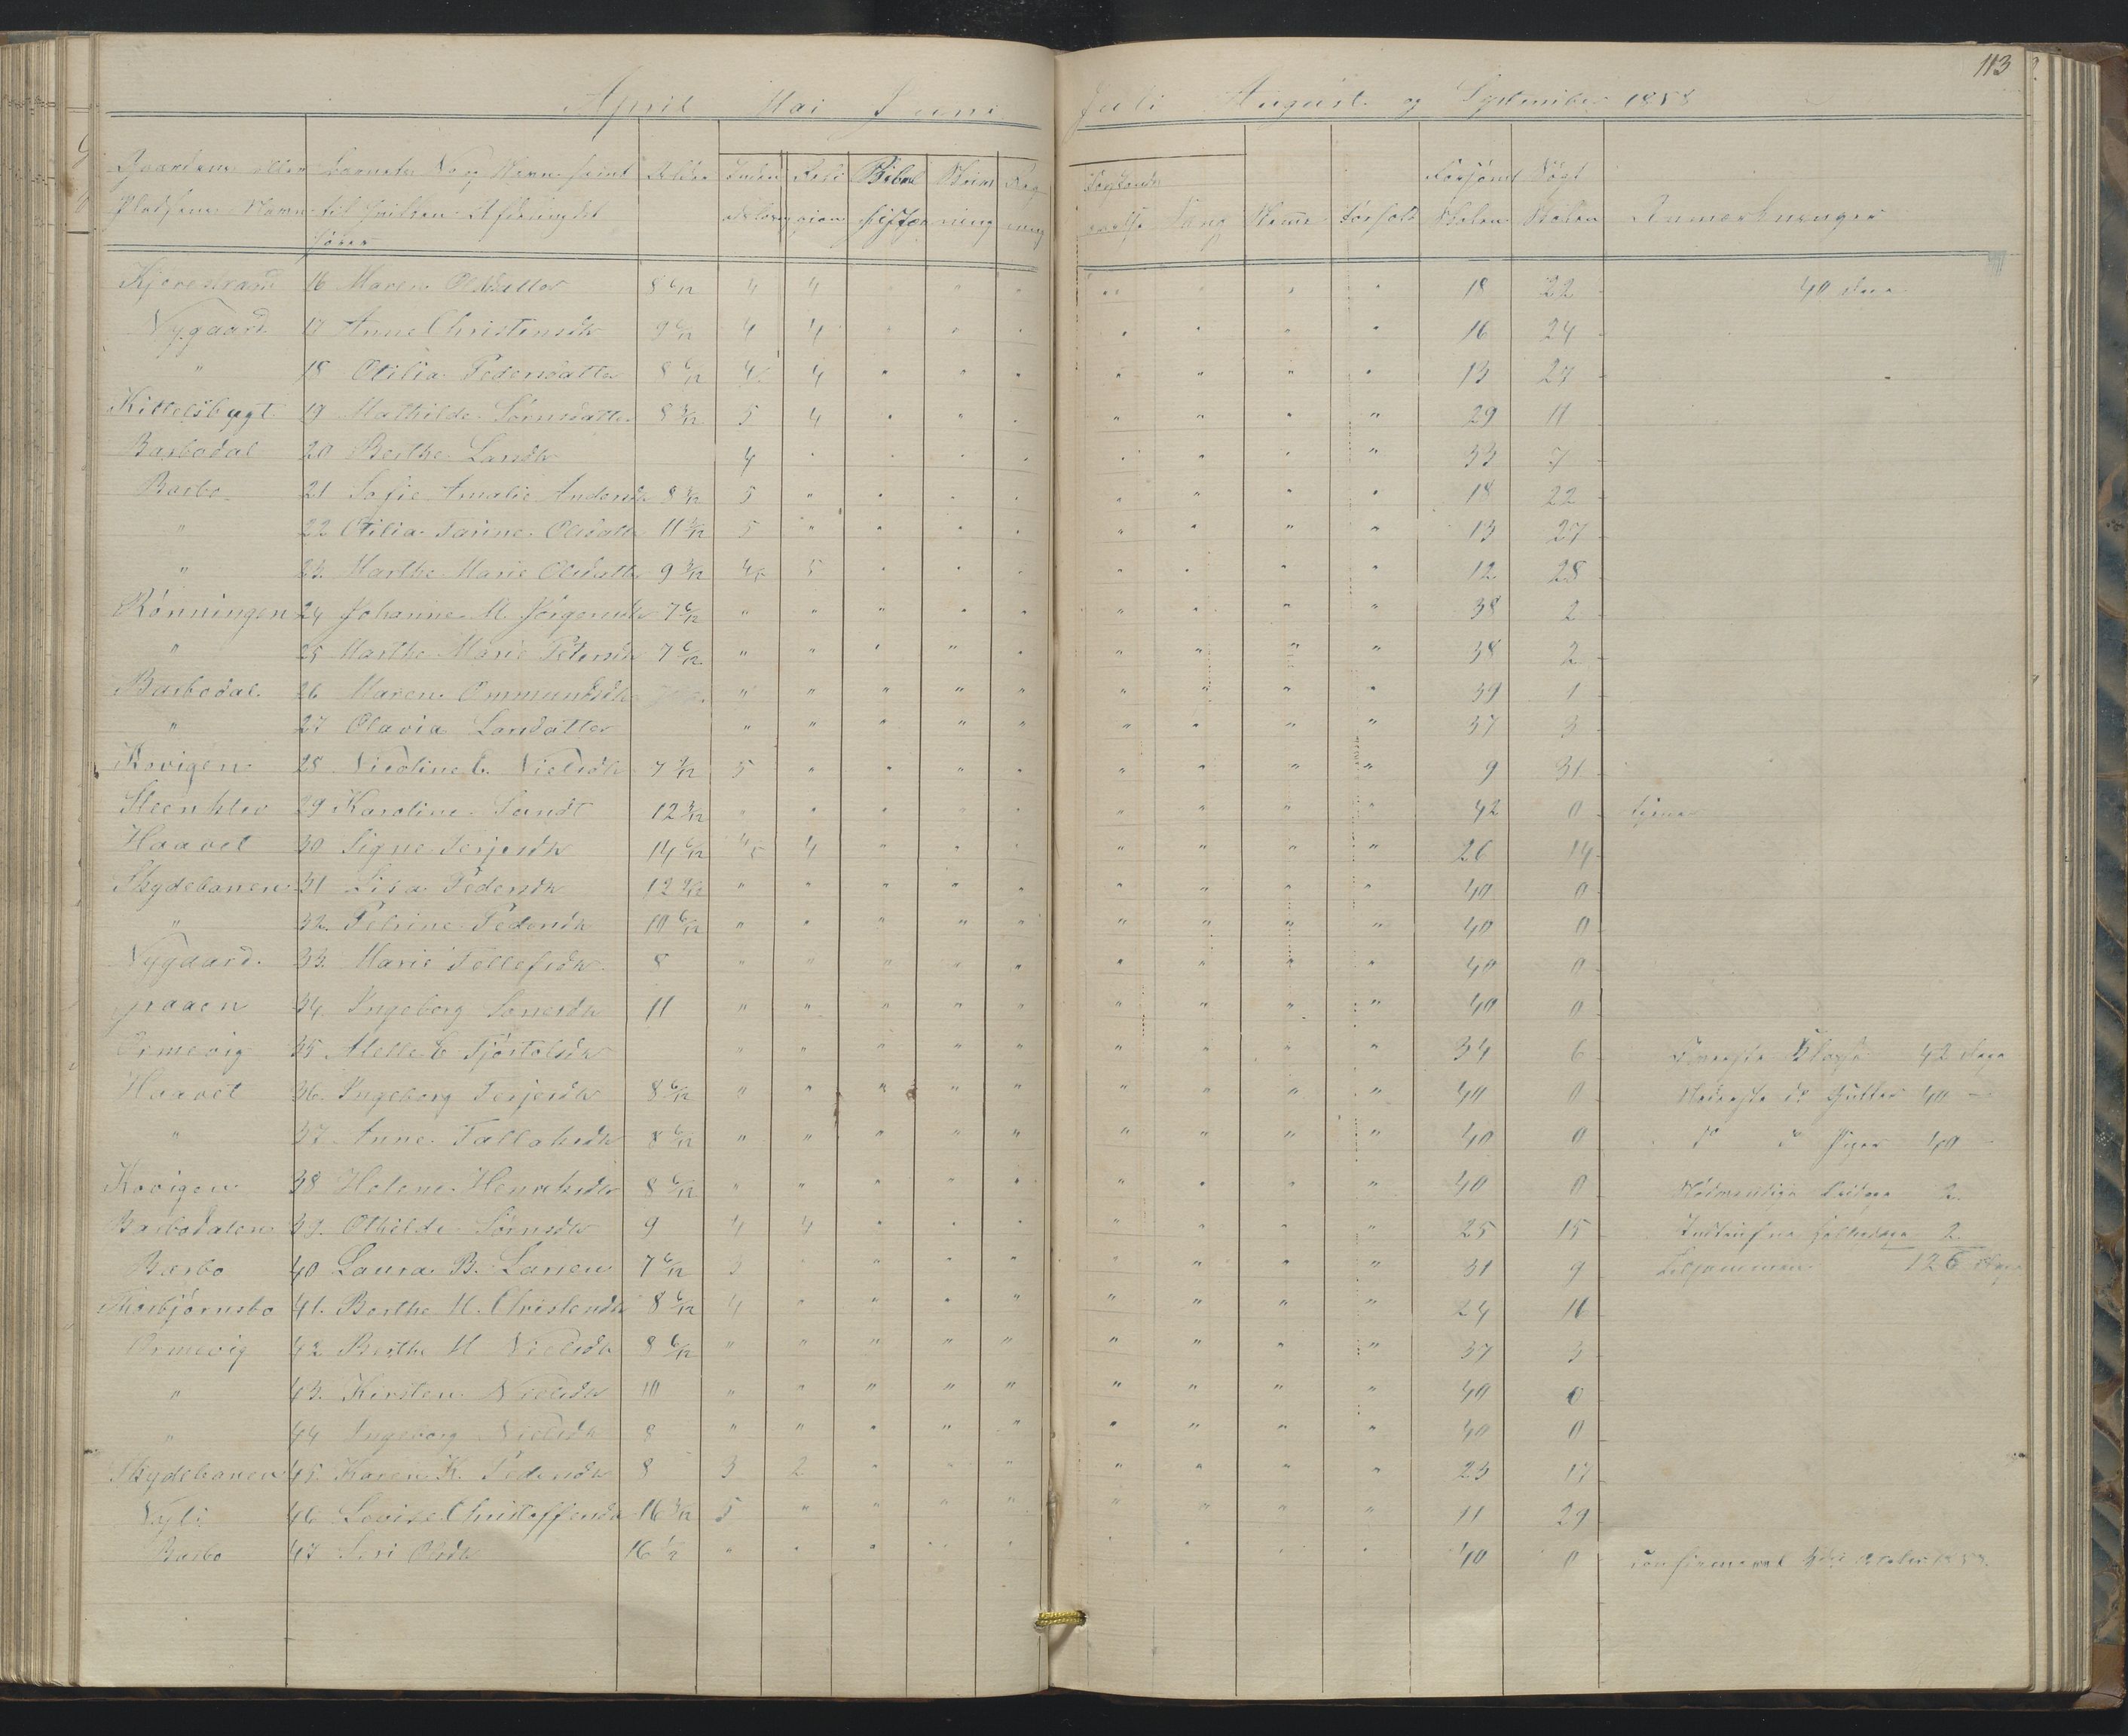 113
April Mai Juni Juli August og September 1858
Gaardens eller Barnets No og Navn samt Alder Inden Reli Bibel Skriv Reg Forsömt Søgt
Pladsens Navn til adslæsn gion historie ning ning Sang Evne Forhold Skolen Skolen Anmærkninger
16 Maren Olsdatter 8 6/12 4 4 " " " " " " " 18 22 40 dage
Nygaard 17 Anne Christensdtr 9 6/12 4 4 " " " " " " " 16 24
" 18 Otilia Pedersdatter 8 6/12 4 4 " " " " " " " 13 27
Kittelsbugt 19 Mathilde Sörnsdatter 8 3/12 5 4 " " " " " " " 29 11
Barbodal 20 Berthe Larsdtr 4 " " " " " " " " 33 7
Barbo 21 Sofie Amalie Andersdtr 8 3/12 5 " " " " " " " " 18 22
" 22 Otilia Tarine Olsdatter 11 3/12 5 " " " " " " " " 13 27
" 23. Marthe Marie Olsdatter 9 3/12 4 5 " " " " " " " 12 28
Rönningen 24 Johanne M. Jörgensdtr 7 6/12 " " " " " " " " " 38 2
" 25 Marthe Marie Petersdtr 7 6/12 " " " " " " " " " 38 2
Barbodal 26 Maren Ommundsdtr " " " " " " " " " 39 1
" 27 Olavia Larsdatter " " " " " " " " " 37 3
Kovigen 28 Nicoline C. Nielsdtr 7 3/12 5 " " " " " " " " 9 31
Steenklev 29 Karoline Sandt 12 3/12 " " " " " " " " " 42 0
Haavet 30 Signe Terjesdtr 14 6/12 4 5 4 " " " " " " " 26 14
Skydebanen 31 Lisa Pedersdtr 12 " " " " " " " " " 40 0
" 32. Petrine Pedersdtr 10 6/12 " " " " " " " " " 40 0
Nygaard. 33. Marie Tellefsdtr 8 " " " " " " " " " 40 0
34. Ingeborg 11 " " " " " " " " " 40 0
Ormevig 35 " " " " " " " " " 34 6 Överste Klasse 42 dage
Haavet 36. Ingeborg Terjesdtr 8 6/12 " " " " " " " " " 40 0 Nederste do Gutter 40 —
" 37 Anne Tallaksdtr 8 6/12 " " " " " " " " " 40 0 do do Piger 40 —
Kovigen 38 Helene Henriksdtr 8 6/12 " " " " " " " " " 40 0 2.
Barbodalen 39. Othilde Sörnsdtr 9 4 4 " " " " " " " 25 15 2.
Barbo 40 Laura B. Larsen 7 6/12 3 " " " " " " " " 31 9 Tilsammen 126 dage
Thorbjörnsbo 41. Berthe M. Christensdtr 8 6/12 4 " " " " " " " " 24 16
Ormevig 42 Berthe M Nielsdtr 8 6/12 " " " " " " " " " 37 3
" 43. Kirsten Nielsdtr 10 " " " " " " " " " 40 0
" 44 Ingeborg Nielsdtr 8 " " " " " " " " " 40 0
Skydebanen 45. Karen K. Pedersdtr 8 3 2 " " " " " " " 23 17
Nyli 46 Lovise Christoffersdtr 16 3/12 5 " " " " " " " " 11 29
Barbo 47 Siri Olsdtr 16 1/2 " " " " " " " " 40 0 confirmeret October 1858.